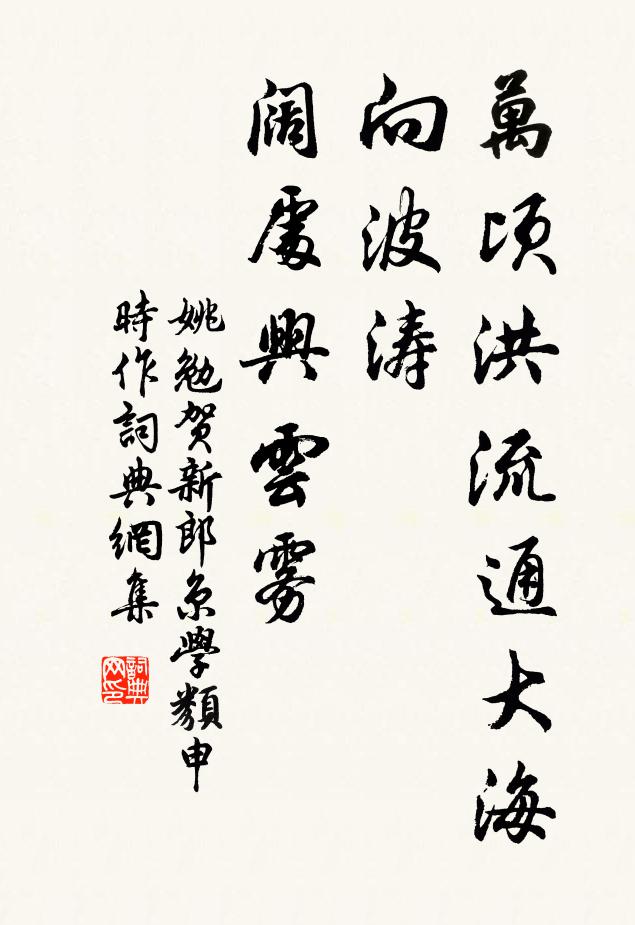 萬頃洪流通大海
向波濤
闊處興雲霧
姚勉賀新郎京學類申
時作詞典網集
詞典网印